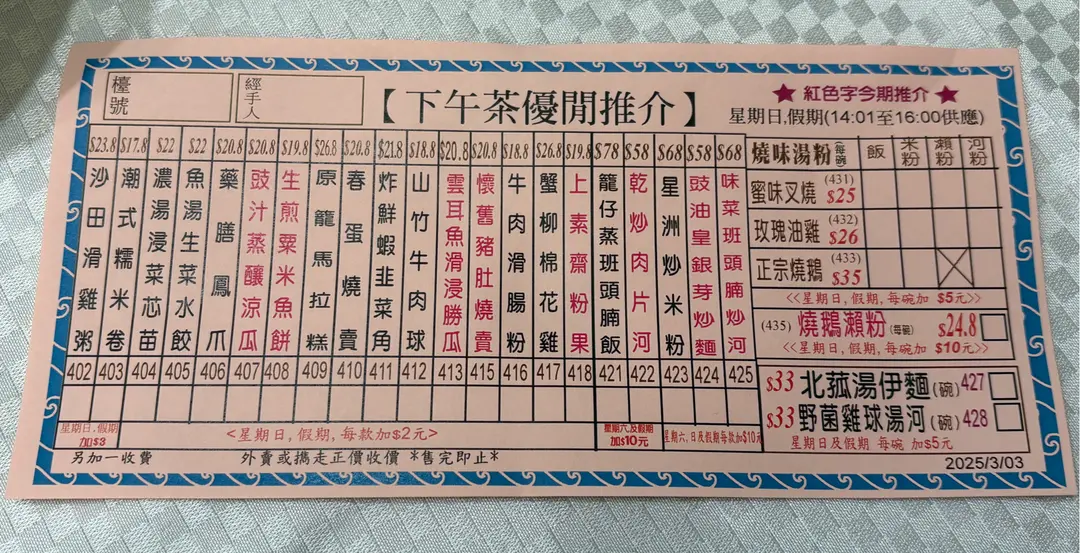 檯號
經手人
【下午茶優閒推介】
★ 紅色字今期推介 ★
星期日,假期(14:01至16:00供應)
$23.8 沙田滑雞粥 402
$17.8 潮式糯米卷 403
$22 濃湯浸菜芯苗 404
$22 魚湯生菜水餃 405
$20.8 藥膳鳳爪 406
$20.8 豉汁蒸釀涼瓜 407
$19.8 生煎粟米魚餅 408
$26.8 原籠馬拉糕 409
$20.8 春蛋燒賣 410
$21.8 炸鮮蝦韭菜角 411
$18.8 山竹牛肉球 412
$20.8 雲耳魚滑浸勝瓜 413
$20.8 懷舊豬肚燒賣 415
$18.8 牛肉滑腸粉 416
$26.8 蟹柳棉花雞 417
$19.8 上素齋粉果 418
$78 籠仔蒸班頭腩飯 421
$58 乾炒肉片河 422
$68 星洲炒米粉 423
$58 豉油皇銀芽炒麵 424
$68 味菜班頭腩炒河 425
星期日,假期加$3
<星期日,假期,每款加$2元>
星期六及假期加$10元
星期六,日及假期每款加$10元
燒味湯粉(每碗) 飯 米粉 瀨粉 河粉
蜜味叉燒 (431) $25
玫瑰油雞 (432) $26
正宗燒鵝 (433) $35
<<星期日,假期,每碗加 $5元>>
(435) 燒鵝瀨粉 (每碗) $24.8
<<星期日,假期,每碗加 $10元>>
$33 北菰湯伊麵(碗) 427
$33 野菌雞球湯河(碗) 428
星期日及假期 每碗 加$5元
另加一收費
外賣或攜走正價收價 *售完即止*
2025/3/03